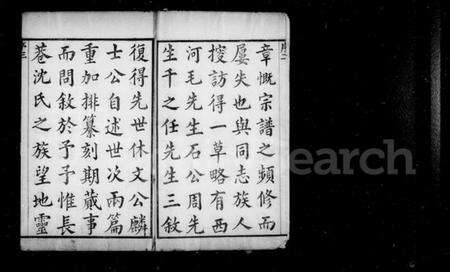 序二
章慨宗譜之頻修而
屢失也與同志族人
搜訪得一草略有西
河毛先生石公周先
生千之任先生三敘
復得先世休文公麟
士公自述世次兩篇
重加排纂刻期蕆事
而問敘於予予惟長
巷沈氏之族望地靈
序三
search